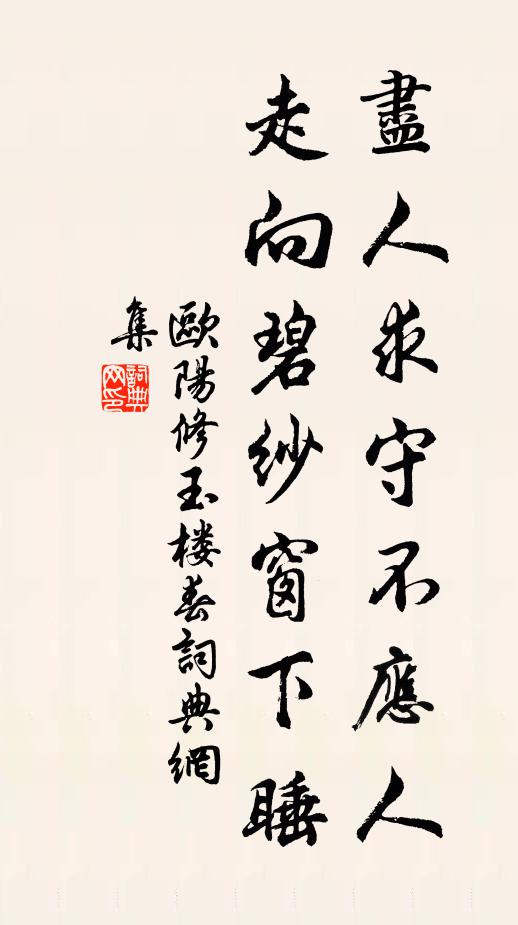 盡人求守不應人
走向碧紗窗下睡
歐陽修玉楼春詞典網
集
詞典
网印